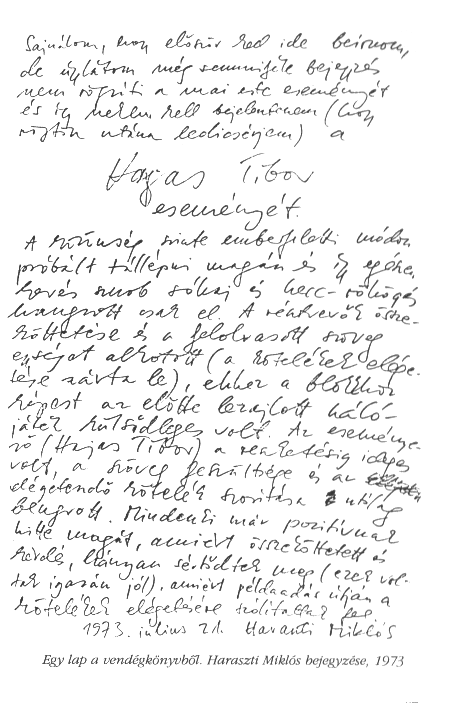 Sajnálom, hogy először ide beírnom,
de úgylátom még semmiféle bejegyzés
nem rögzíti a mai este eseményét
és így nekem kell bejelentenem (hogy
rögtön utána ledicsérjem) a
Hajas Tibor
eseményét.
A közönség szinte emberfeletti módon
próbált túllépni magán és így egészen
kevés snob sóhaj és hecc-röhögés
hangzott csak el. A résztvevők össze-
kötözése és a felolvasott szöveg
egységet alkotott (a kötelékek elége-
tése zárta le), ehhez a blokkhoz
képest az előtte lezajlott háló-
játék külsődleges volt. Az eseménye-
ző (Hajas Tibor) a ideges
volt, a szöveg feszültsége és az
elégetendő kötelék szorítása utólag
beugrott. Mindenki már pozitívnak
hitte magát, amiért összekötöztetett és
kérdés, hányan sértődtek meg (ezek vol-
tak igazán jól), amiért példaadás útján a
kötelékek elégetésére szólíttattak fel
1973. július 21. Haraszti Miklós
Egy lap a vendégkönyvből. Haraszti Miklós bejegyzése, 1973